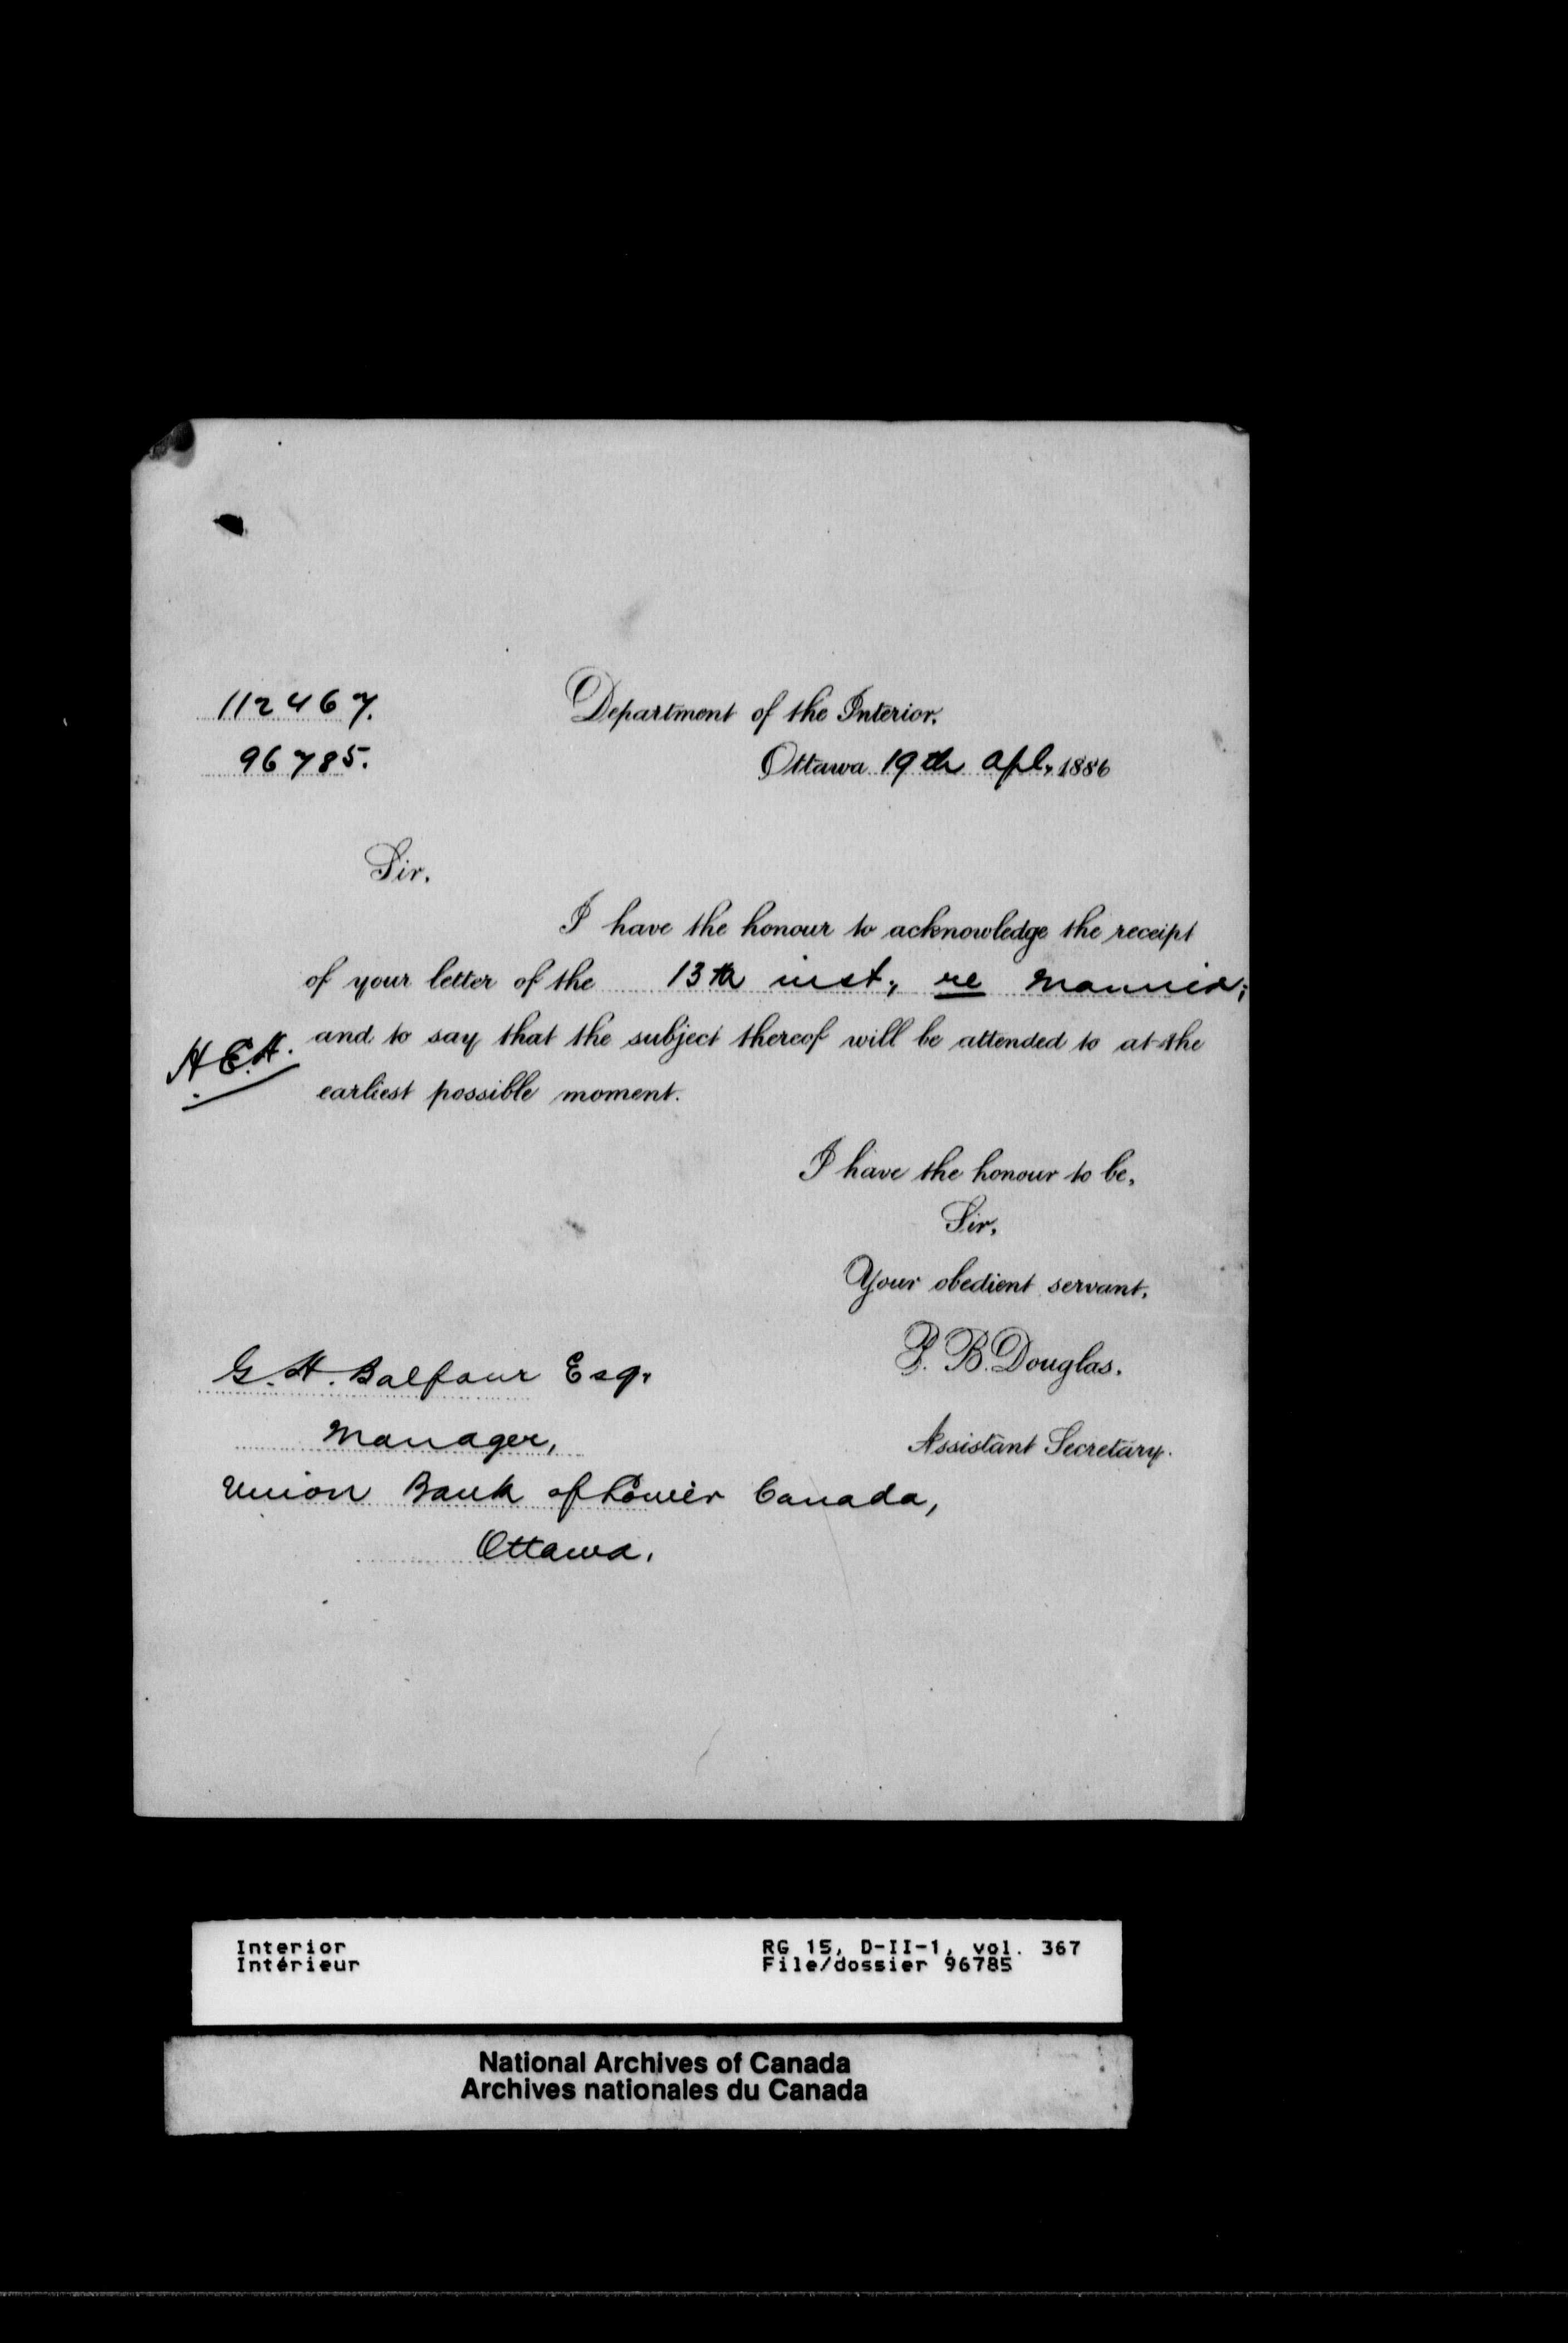 112467.
96785.
Department of the Interior.
Ottawa 19th Apl, 1886
Sir.
I have the honour to acknowledge the receipt
of your letter of the 13th inst; re
and to say that the subject thereof will be attended to at the
H.E.H.
earliest possible moment.
I have the honour to be,
Sir,
Your obedient servant,
P. B. Douglas.
Assistant Secretary.
G. H. Balfour Esq.
Manager,
Union Bank of Lower Canada,
Ottawa.
Interior
Intérieur
RG 15, D-II-1, vol. 367
File/dossier 96785
National Archives of Canada
Archives nationales du Canada